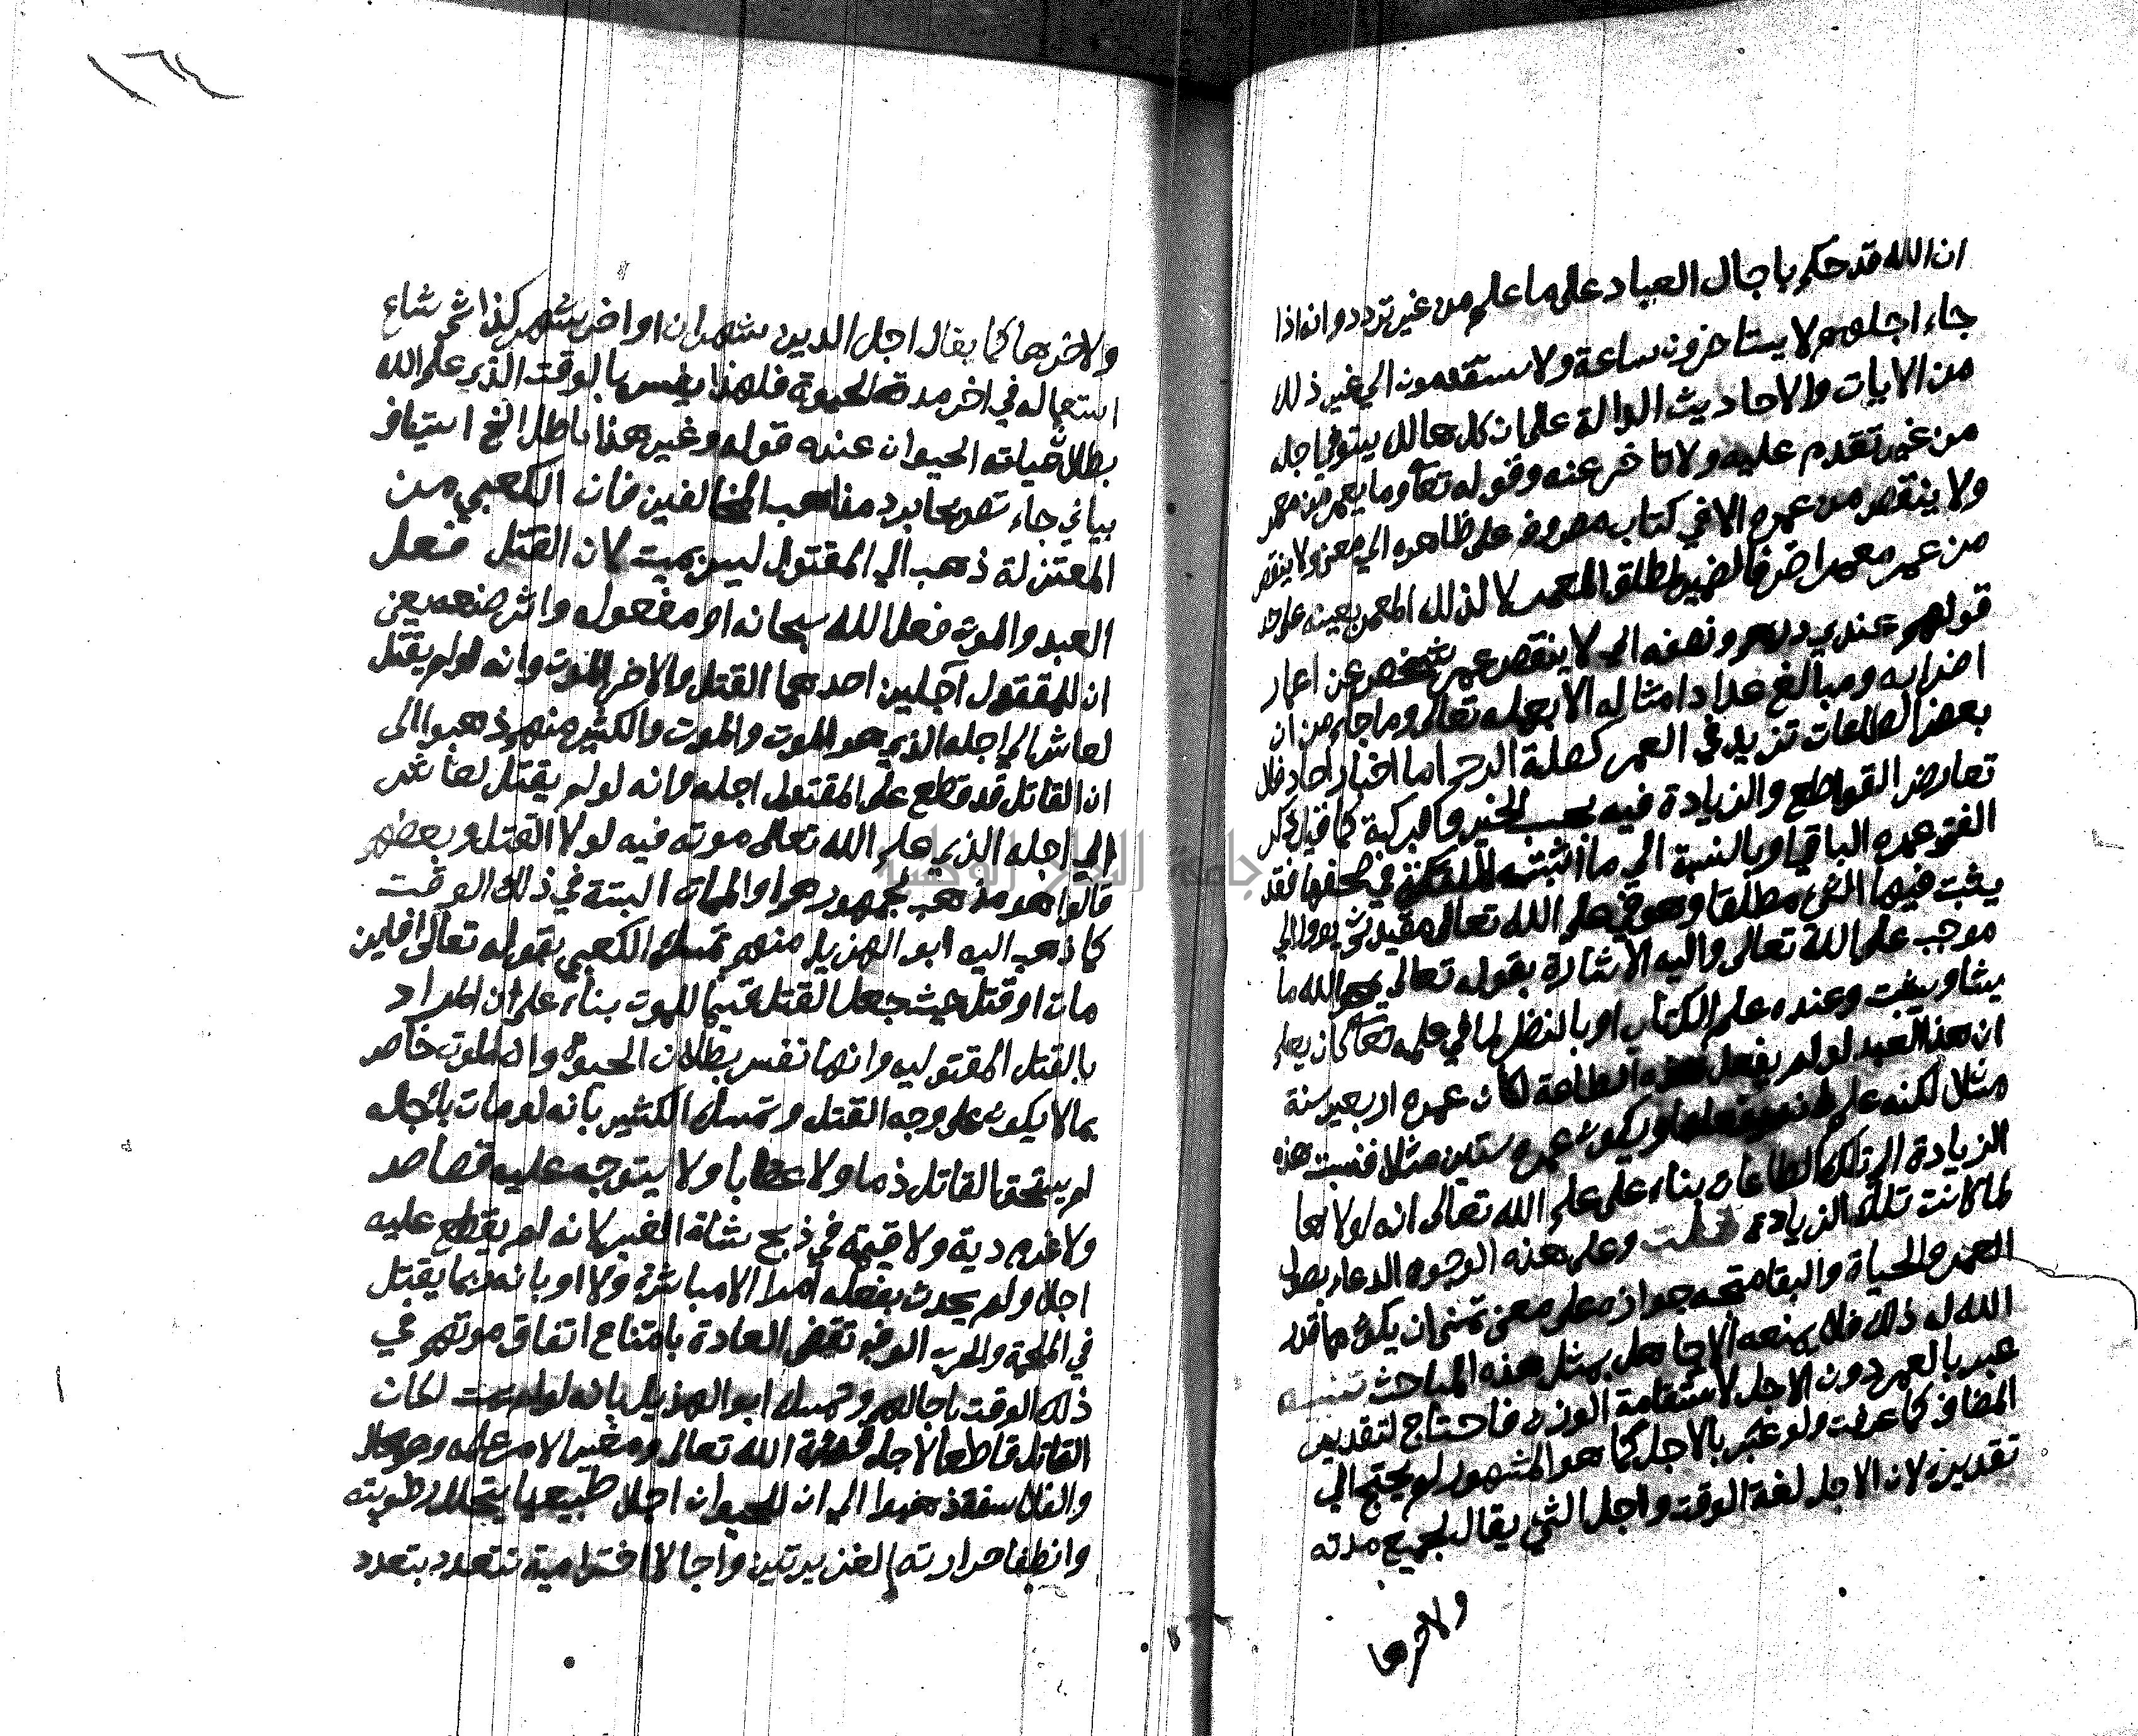 ان الله قد حكم باجال العباد على ما علم من غير تردد وانه اذا
جاء اجلهم لا يستاخرون ساعة ولا يستقدمون الي غير ذلك
من الايات والاحاديث الدالة على ان كل هالك يستوفي اجله
من غير تقدم عليه ولا تاخر عنه وقوله تعا وما يعمر من معمر
ولا ينقص من عمره الا في كتاب مصروف على ظاهره الي معنى ولا ينقص
من عمر معمر اخر فالضمير لمطلق المعمر لا لذلك المعمر بعينه على حد
قولهم عندي درهم ونصفه اي لا ينقص عمر شخص عن اعمار
اضرابه ومبالغ عداد امثاله الا بعلمه تعالى وما جاء من ان
بعض الطاعات تزيد في العمر كصلة الرحم اما اخبار احاد فلا
تعارض القواطع والزيادة فيه بحسب الخير والبركة كما قيل ذكر
الفتى عمره الباقي او بالنسبة الي ما اثبتته الملائكة في صحفها فقد
يثبت فيها الشئ مطلقا وهو في علم الله تعالى مقيد ثم يؤول الي
موجب علم الله تعالى واليه الاشارة بقوله تعالي يمحو الله ما
يشا ويثبت وعنده علم الكتاب او بالنظر لما في علمه تعا كان يعلم
ان هذا العبد لو لم يفعل هذه الطاعة لكان عمره اربعين سنة
مثلا لكنه علم انه يفعلها ويكون عمره ستين مثلا فنسبت هذه
الزيادة الي تلك الطاعات بناء على علم الله تعالى انه لولاها
لما كانت تلك الزيادة قلت وعلى هذه الوجوه الدعاء بطول
العمر والحياة والبقا متجه جوازه على معنى تمني ان يكون مما قدر
الله له ذلك فلا يمنعه الا جاهل بمثل هذه المباحث تنبيه
عبر بالعمر دون الاجل لاستقامة الوزن فاحتاج لتقدير
المضاف كما عرفت ولو عبر بالاجل كما هو المشهور لم يحتج الي
تقديره لان الاجل لغة الوقت واجل الشي يقال لجميع مدته
ولاخرها
١٦٤
ولاخرها كما يقال اجل الدين شهران او اخر شهر كذا ثم شاع
استعماله في اخر مدة الحيوة فلهذا يفسر بالوقت الذي علم الله
بطلان حياة الحيوان عنده قوله وغير هذا باطل الخ استيناف
بياني جاء تصريحا برد مذاهب المخالفين فان الكعبي من
المعتزلة ذهب الي المقتول ليس بميت لان القتل فعل
العبد والموت فعل الله سبحانه او مفعوله واثر صنعه يعن
ان للمقتول اجلين احدهما القتل والاخر الموت وانه لو لم يقتل
لعاش الي اجله الذي هو الموت والموت والكثير منهم ذهبوا الى
ان القاتل قد قطع على المقتول اجله وانه لو لم يقتل لعاش
الي اجله الذي علم الله تعالى موته فيه لولا القتل وبعضهم
قالوا هو مذهب جمهورهم والمات البتة في ذلك الوقت
كما ذهب اليه ابو الهذيل منهم تمسك الكعبي بقوله تعالى افاين
مات او قتل حيث جعل القتل قسيما للموت بناء على ان المراد
بالقتل المقتوليه وانها نفس بطلان الحيوة وان الموت خاص
بما لا يكون على وجه القتل وتمسك الكثير بانه لو مات باجله
لم يستحق القاتل ذما ولا عقابا ولا يتوجه عليه قصاص
ولا غرم دية ولا قيمة في ذبح شاة الغير لانه لم يقطع عليه
اجلا ولم يحدث بفعله امرا لا مباشرة ولا او بانه ربما يقتل
في الملحمة والحرب الوف تقضي العادة بامتناع اتفاق موتهم في
ذلك الوقت باجالهم وتمسك ابو الهذيل بانه لو لم يمت لكان
القاتل قاطعا لاجله الله تعالى ومغيرا لامر علمه وهو محال
والفلاسفة ذهبوا الي ان للحيوان اجلا طبيعيا بتحلل رطوبته
وانطفا حرارته الغزيرتين واجالا اخترامية تتعدد بتعدد
جامعة النجاح الوطنية